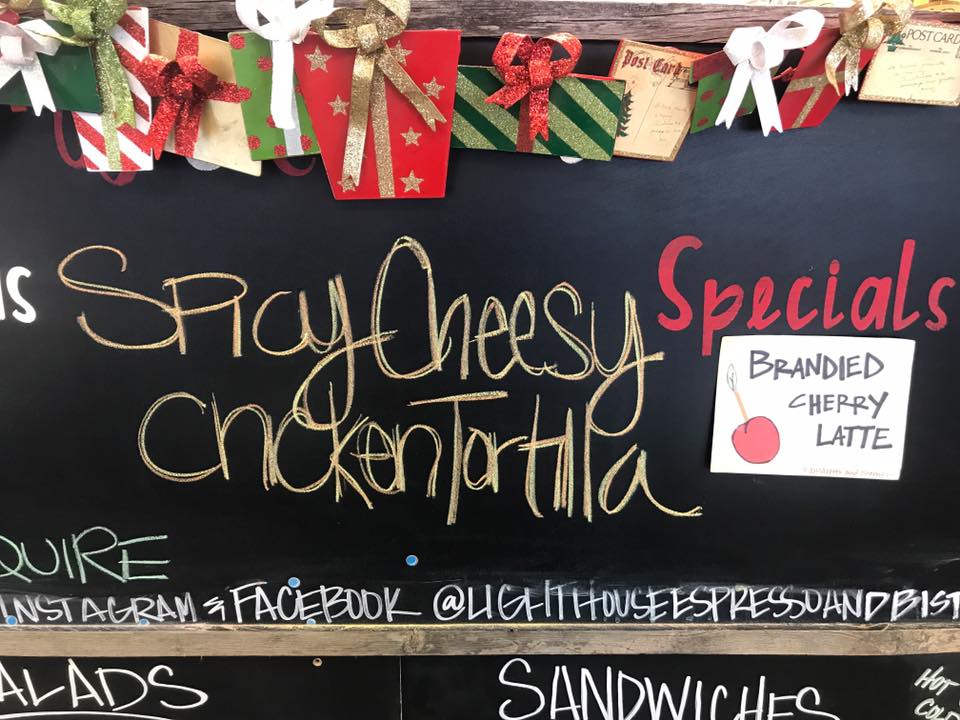 Post Card
POST CARD
Specials
Spicy Cheesy
Chicken Tortilla
BRANDIED
CHERRY
LATTE
QUIRE
INSTAGRAM & FACEBOOK @LIGHTHOUSEESPRESSOANDBIST
ALADS
SANDWICHES
HOT
COLD